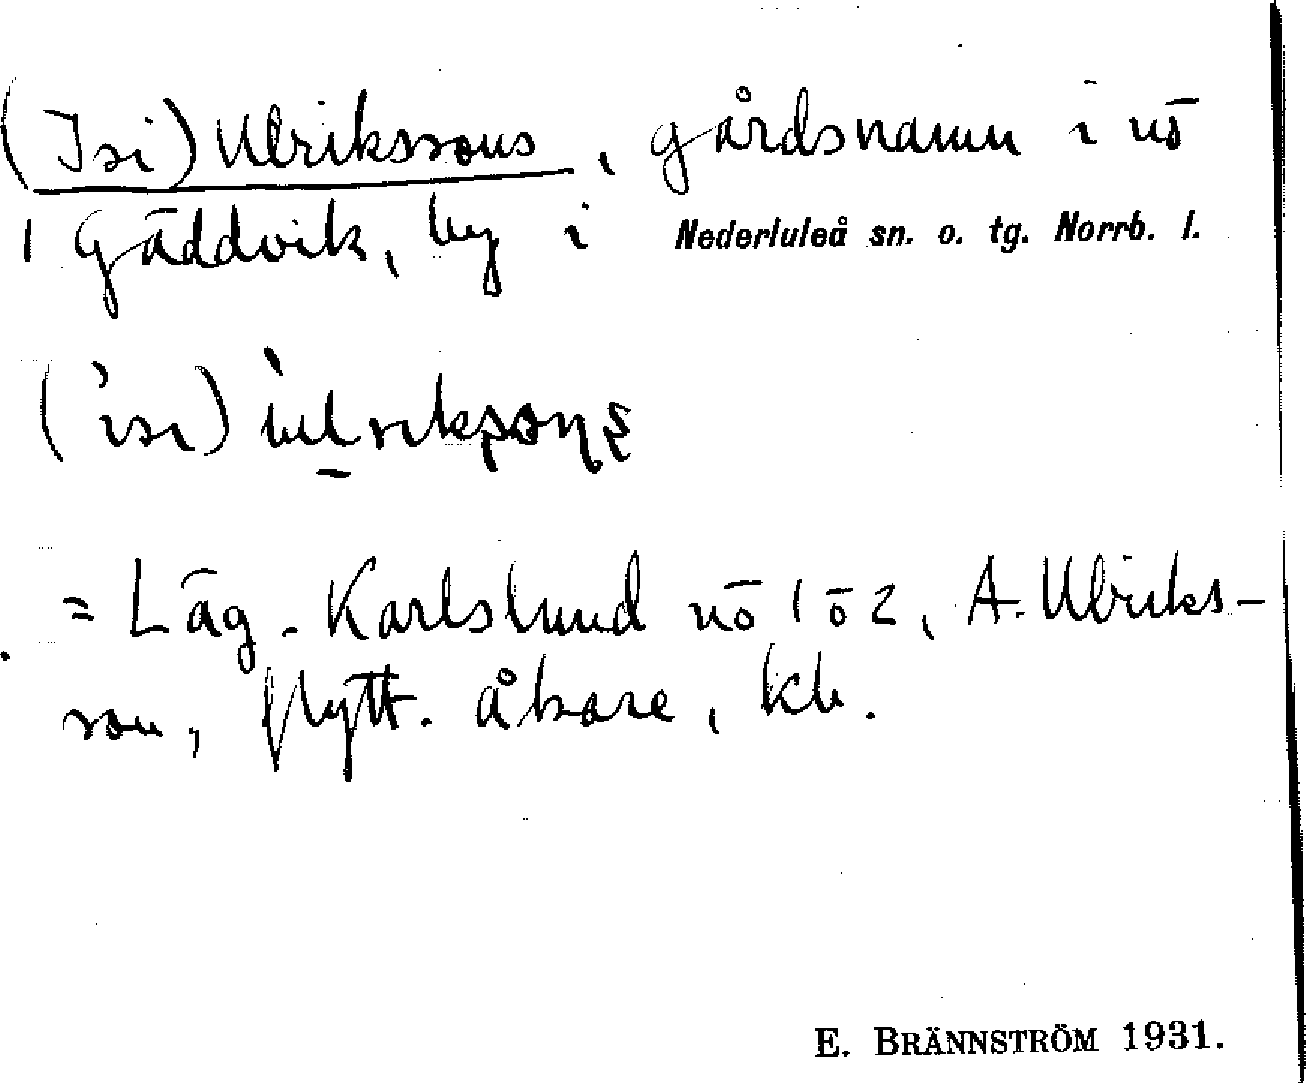 (Isi) Ulrikssons, gårdsnamn i nö
1 Gäddvik, by i Nederluleå sn. o. tg. Norrb. l.
= Läg. Karlslund nö 1 ö 2, A. Ulriks-
son, flytt. åbare, kb.
E. BRÄNNSTRÖM 1931.